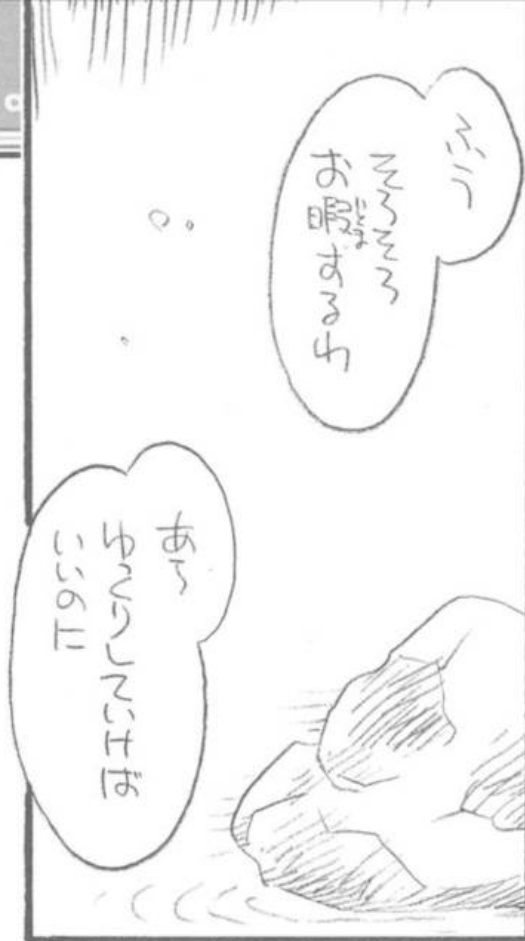 ふう
そろそろ
お暇するわ
いとま
あ〜
ゆっくりしていけば
いいのに